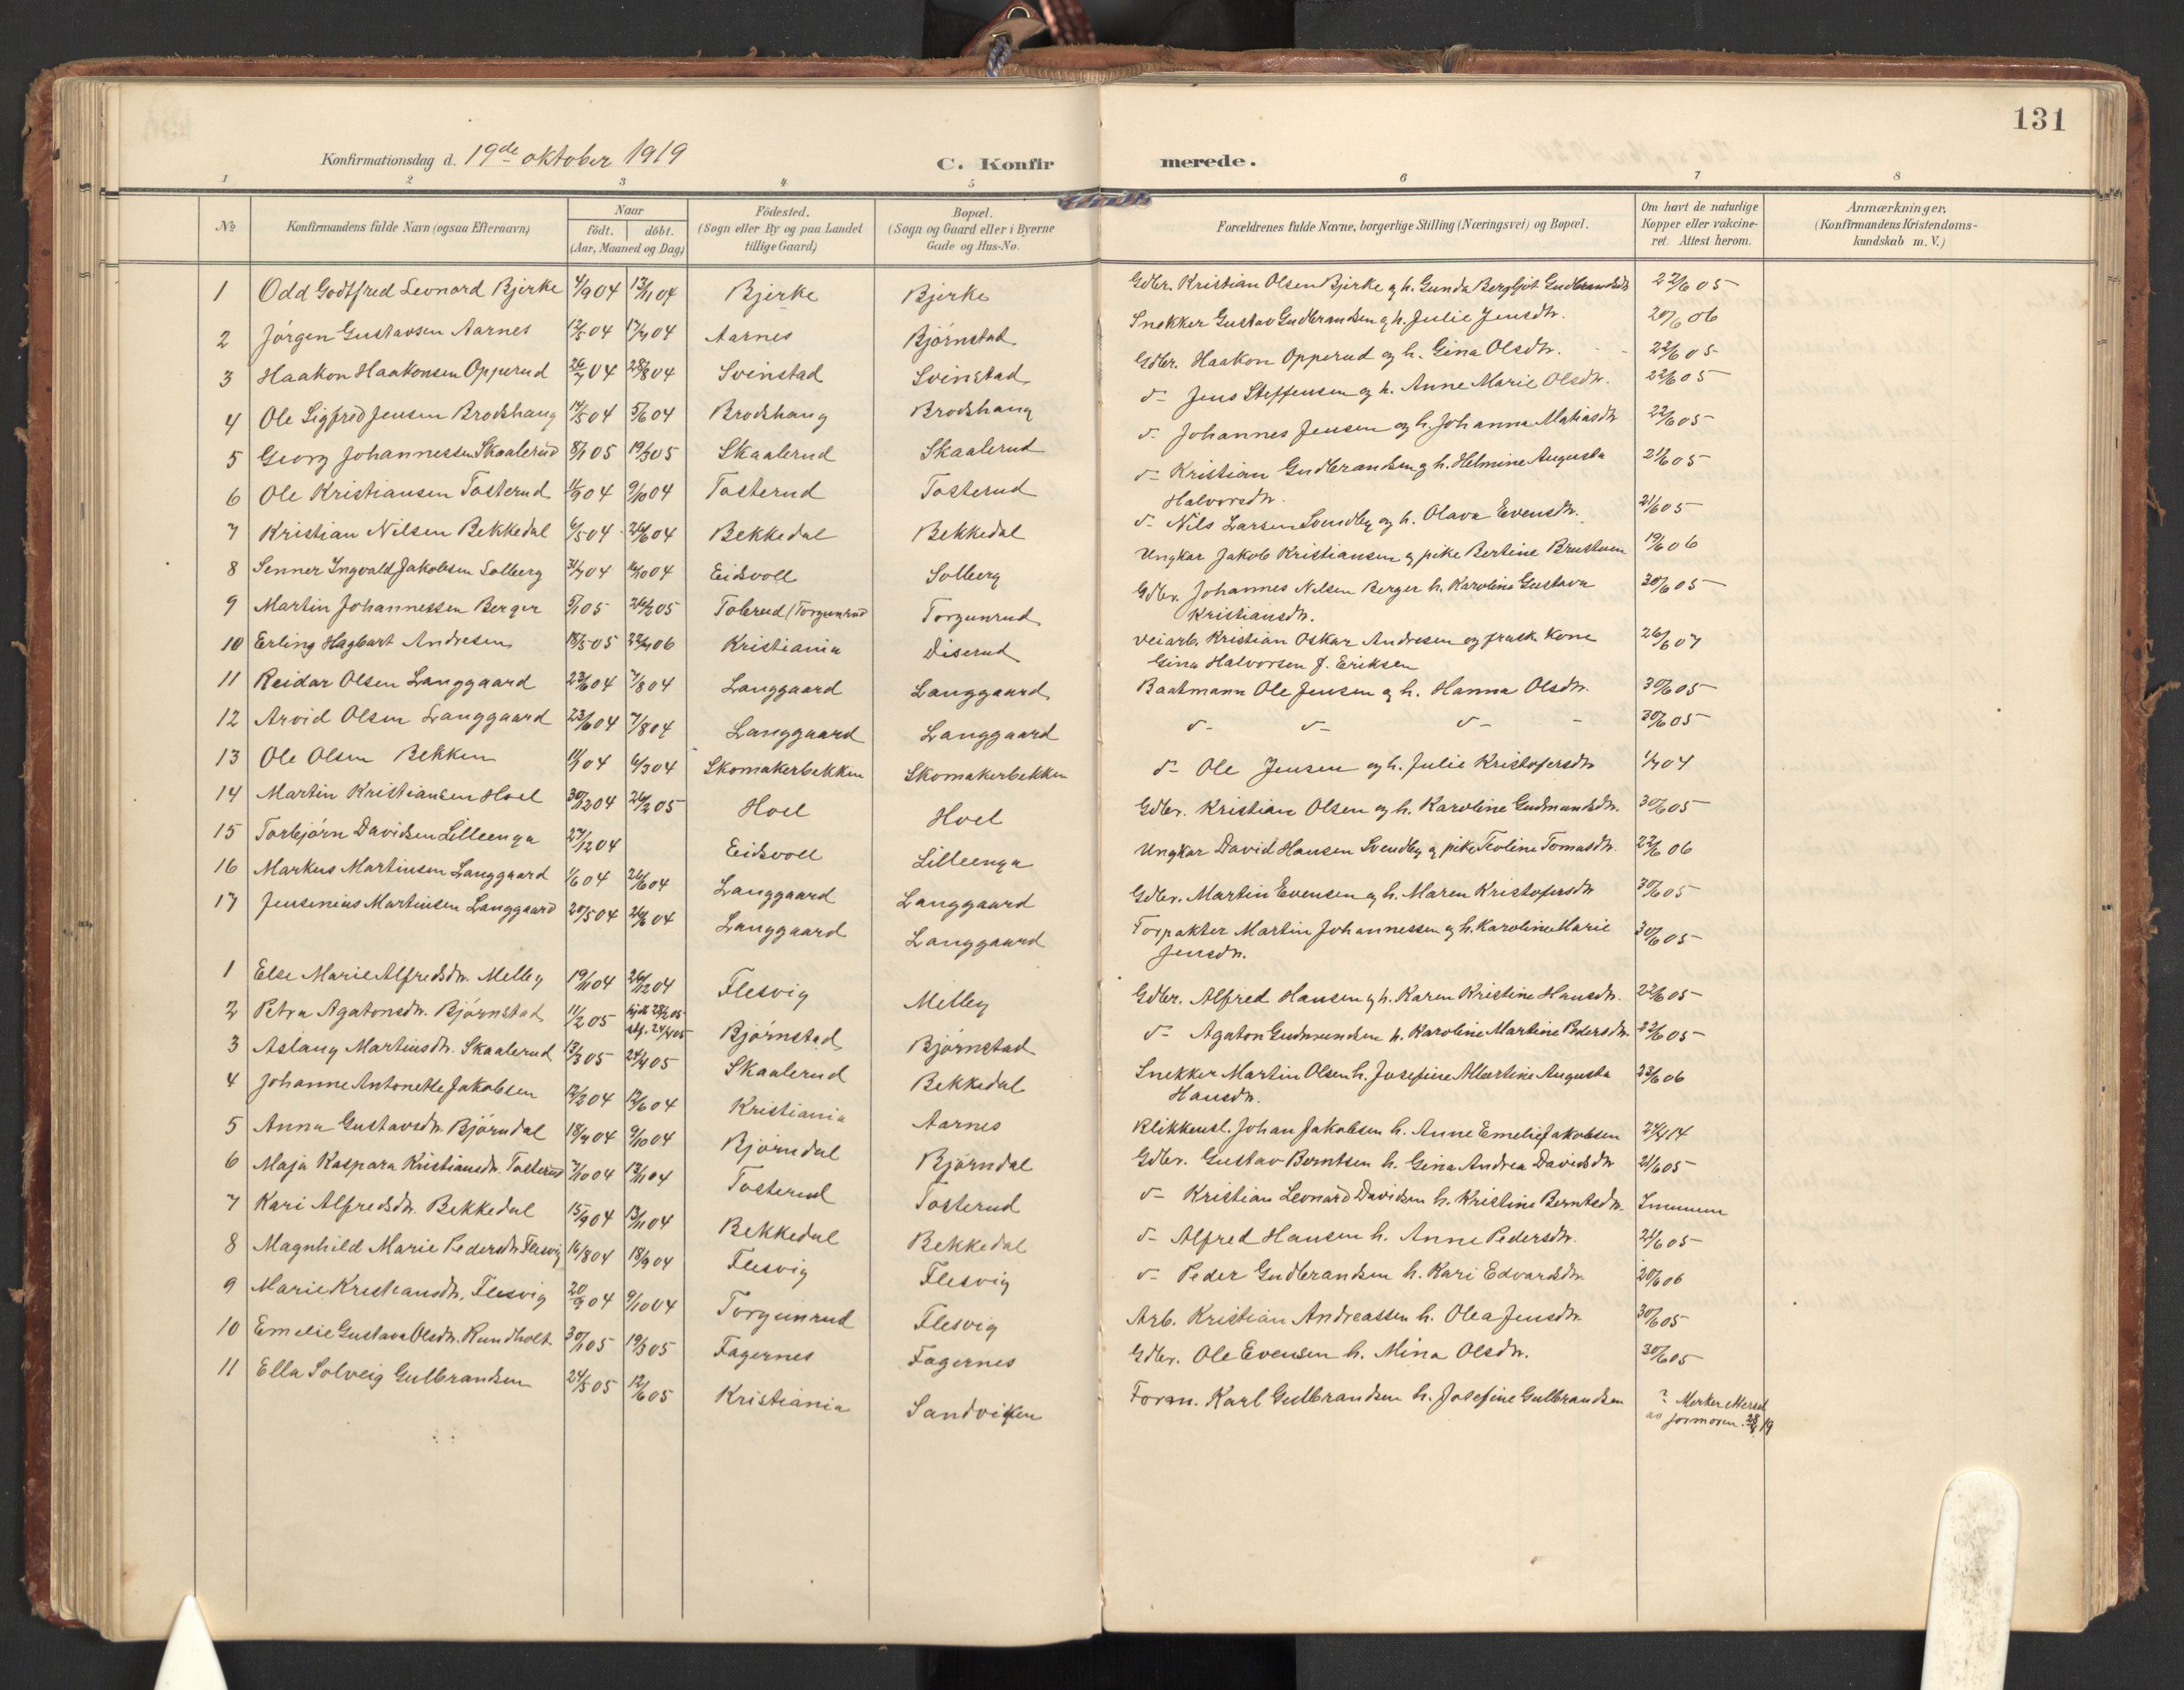 131
Konfirmationsdag d. 19de oktober 1919
C. Konfirmerede.
1 2 3 4 5 6 7 8
No
Konfirmandens fulde Navn (ogsaa Efternavn)
Naar
födt. döbt.
(Aar, Maaned og Dag)
Födested.
(Sogn eller By og paa Landet
tillige Gaard)
Bopæl.
(Sogn og Gaard eller i Byerne
Gade og Hus-No.
Forældrenes fulde Navne, borgerlige Stilling (Næringsvei) og Bopæl.
Om havt de naturlige
Kopper eller vakcine-
ret. Attest herom.
Anmærkninger,
(Konfirmandens Kristendoms-
kundskab m. V.)
1 Odd Godtfred Leonard Bjerke 4/9 04 13/11 04 Bjerke Bjerke Gdbr. Kristian Olsen Bjerke og h. Gunda Bergljot Gudbrandsdtr 22/6 05
2 Jörgen Gustavsen Aarnes 12/5 04 17/7 04 Aarnes Björnstad Snekker Gustav Gudbrandsen og h. Julie Jensdtr. 20/6 06
3 Haakon Haakonsen Opperud 26/7 04 28/8 04 Svinstad Svinstad Gdbr. Haakon Opperud og h. Gina Olsdtr. 22/6 05
4 Ole Sigfred Jensen Brodshaug 14/5 04 5/6 04 Brodshaug Brodshaug d- Jens Steffensen og h. Anne Marie Olsdtr. 22/6 05
5 Georg Johannessen Skaalerud 8/1 05 19/3 05 Skaalerud Skaalerud d- Johannes Jensen og h. Johanna Matiasdtr 22/6 05
6 Ole Kristiansen Tosterud 11/9 04 9/10 04 Tosterud Tosterud d- Kristian Gudbrandsen og h. Helmine Augusta
Halvorsdtr. 21/6 05
7 Kristian Nilsen Bekkedal 6/5 04 26/6 04 Bekkedal Bekkedal d- Nils Larsen Svendby og h. Olava Evensdtr. 21/6 05
8 Senner Ingvald Jakobsen Solberg 31/7 04 16/10 04 Eidsvoll Solberg Ungkar Jakob Kristiansen og pike Bertine Brustuen 19/6 06
9 Martin Johannessen Berger 5/1 05 26/2 05 Toberud (Torgunrud Torgunrud Gdbr. Johannes Nilsen Berger h. Karoline Gustava
Kristiansdtr. 30/6 05
10 Erling Hagbart Andresen 18/5 05 22/4 06 Kristiania Diserud Veiarb. Kristian Oskar Andresen og frask. Kone
Gina Halvorsen f. Eriksen 26/6 07
11 Reidar Olsen Langgaard 23/6 04 7/8 04 Langgaard Langgaard Baatmann Ole Jensen og h. Hanna Olsdtr. 30/6 05
12 Arvid Olsen Langgaard 23/6 04 7/8 04 Langgaard Langgaard d- d- d- - 30/6 05
13 Ole Olsen Bekken 11/1 04 6/3 04 Skomakerbekken Skomakerbekken d- Ole Jensen og h. Julie Kristofersdtr 1/7 04
14 Martin Kristiansen Hoel 30/12 04 26/2 05 Hoel Hoel Gdbr. Kristian Olsen og h. Karoline Gudmundsdtr. 30/6 05
15 Torbjörn Davidsen Lilleenga 27/12 04 Eidsvoll Lilleenga Ungkar David Hansen Svendby og pike Teoline Tomasdtr. 22/6 06
16 Markus Martinsen Langgaard 1/6 04 26/6 04 Langgaard Langgaard Gdbr. Martin Evensen og h. Maren Kristofersdtr 30/6 05
17 Jensenius Martinsen Langgaard 20/5 04 26/6 04 Langgaard Langgaard Forpakter Martin Johannessen og h. Karoline Marie
Jensdtr. 30/6 05
1 Else Marie Alfredsdtr. Melby 19/11 04 26/12 04 Flesvig Melby Gdbr. Alfred Hansen og h. Karen Kristine Hansdtr. 22/6 05
2 Petra Agatonsdtr. Björnstad 11/2 05 hjd 28/2 05
stf. 24/4 05 Björnstad Björnstad d- Agaton Gudmundsen h. Karoline Martine Pedersdtr. 22/6 05
3 Aslaug Martinsdtr. Skaalerud 13/3 05 24/4 05 Skaalerud Bekkedal Snekker Martin Olsen h. Josefine Albertine Augusta
Hansdtr. 23/6 06
4 Johanne Antonette Jakobsen 12/2 04 12/6 04 Kristiania Aarnes Blikkensl. Johan Jakobsen h. Anne Emelie Jakobsen 24/4 14
5 Anna Gustavsdtr. Björndal 18/7 04 9/10 04 Björndal Björndal Gdbr. Gustav Berntsen h. Gina Andrea Davidsdtr 21/6 05
6 Maja Kaspara Kristiansdtr. Tosterud 7/10 04 13/11 04 Tosterud Tosterud d- Kristian Leonard Davidsen h. Kristine Berntsdtr. Immun
7 Kari Alfredsdtr. Bekkedal 15/9 04 13/11 04 Bekkedal Bekkedal d- Alfred Hansen h. Anne Pedersdtr. 21/6 05
8 Magnhild Marie Pedersdtr. Flesvig 16/8 04 18/9 04 Flesvig Flesvig d- Peder Gudbrandsen h. Kari Edvardsdtr. 20/6 06
9 Marie Kristiansdtr. Flesvig 20/9 04 9/10 04 Torgunrud Flesvig Arb. Kristian Andreassen h. Olea Jensdtr. 30/6 05
10 Emelie Gustava Olsdtr. Rundholt. 30/1 05 19/3 05 Fagernes Fagernes Gdbr. Ole Evensen h. Mina Olsdtr. 30/6 05
11 Ella Solveig Gulbrandsen 24/5 05 12/6 05 Kristiania Sandviken Form. Karl Gulbrandsen h. Josefine Gulbrandsen ? Merker
av jormoren 19